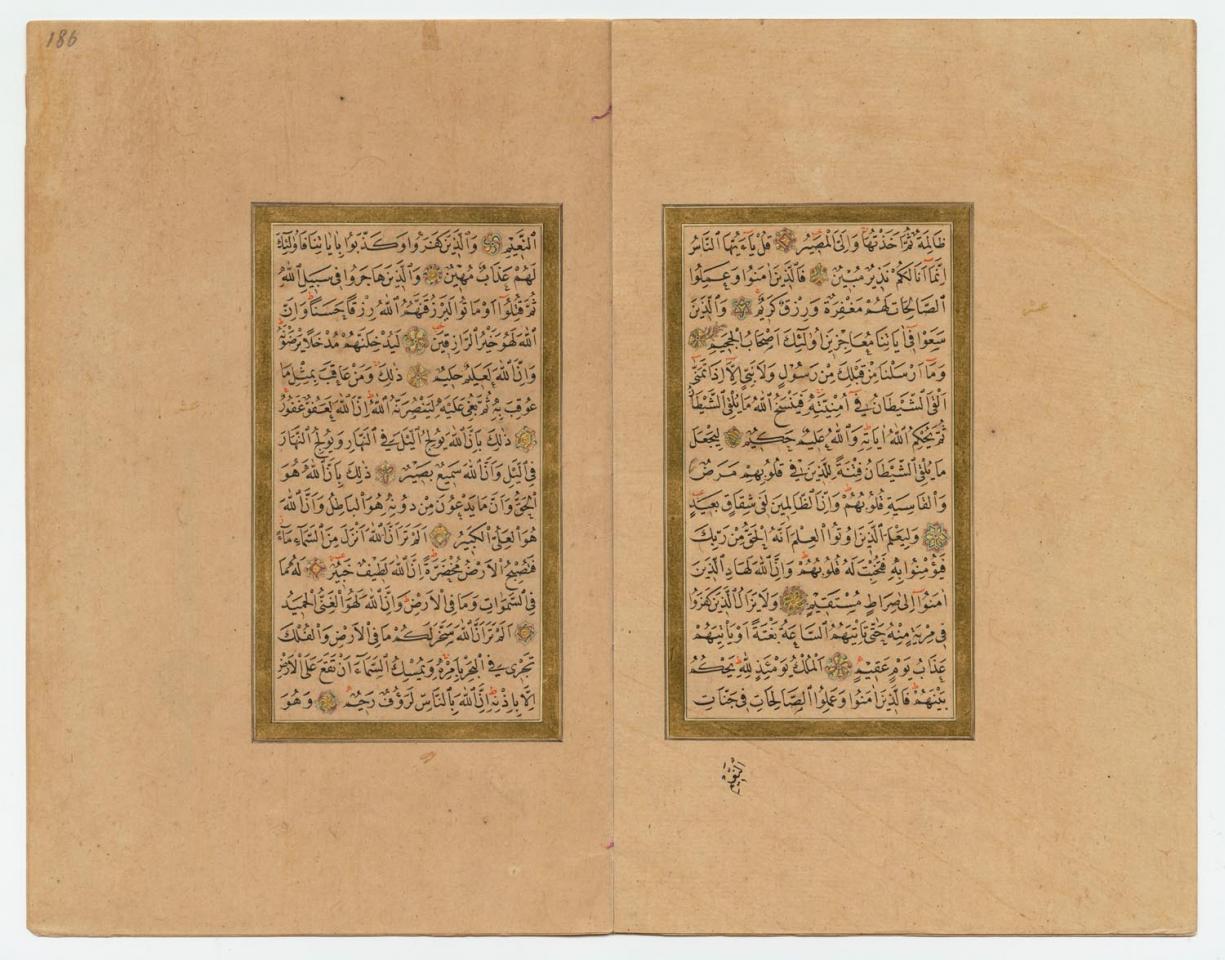 ظَالِمَةٌ ثُمَّ اَخَذْتُهَا وَاِلَىَّ الْمَصٖيرُ قُلْ يَٓا اَيُّهَا النَّاسُ
اِنَّمَٓا اَنَا لَكُمْ نَذٖيرٌ مُبٖينٌ فَالَّذٖينَ اٰمَنُوا وَعَمِلُوا
الصَّالِحَاتِ لَهُمْ مَغْفِرَةٌ وَرِزْقٌ كَرٖيمٌ وَالَّذٖينَ
سَعَوْا فٖٓى اٰيَاتِنَا مُعَاجِزٖينَ اُولٰٓئِكَ اَصْحَابُ الْجَحٖيمِ
وَمَٓا اَرْسَلْنَا مِنْ قَبْلِكَ مِنْ رَسُولٍ وَلَا نَبِىٍّ اِلَّٓا اِذَا تَمَنّٰٓى
اَلْقَى الشَّيْطَانُ فٖٓى اُمْنِيَّتِهٖ فَيَنْسَخُ اللّٰهُ مَا يُلْقِى الشَّيْطَانُ
ثُمَّ يُحْكِمُ اللّٰهُ اٰيَاتِهٖ وَاللّٰهُ عَلٖيمٌ حَكٖيمٌ لِيَجْعَلَ
مَا يُلْقِى الشَّيْطَانُ فِتْنَةً لِلَّذٖينَ فٖى قُلُوبِهِمْ مَرَضٌ
وَالْقَاسِيَةِ قُلُوبُهُمْ وَاِنَّ الظَّالِمٖينَ لَفٖى شِقَاقٍ بَعٖيدٍ
وَلِيَعْلَمَ الَّذٖينَ اُوتُوا الْعِلْمَ اَنَّهُ الْحَقُّ مِنْ رَبِّكَ
فَيُؤْمِنُوا بِهٖ فَتُخْبِتَ لَهُ قُلُوبُهُمْ وَاِنَّ اللّٰهَ لَهَادِ الَّذٖينَ
اٰمَنُٓوا اِلٰى صِرَاطٍ مُسْتَقٖيمٍ وَلَا يَزَالُ الَّذٖينَ كَفَرُوا
فٖى مِرْيَةٍ مِنْهُ حَتّٰى تَأْتِيَهُمُ السَّاعَةُ بَغْتَةً اَوْ يَأْتِيَهُمْ
عَذَابُ يَوْمٍ عَقٖيمٍ اَلْمُلْكُ يَوْمَئِذٍ لِلّٰهِ يَحْكُمُ
بَيْنَهُمْ فَالَّذٖينَ اٰمَنُوا وَعَمِلُوا الصَّالِحَاتِ فٖى جَنَّاتِ
النَّعٖيمِ
186
النَّعٖيمِ وَالَّذٖينَ كَفَرُوا وَكَذَّبُوا بِاٰيَاتِنَا فَاُولٰٓئِكَ
لَهُمْ عَذَابٌ مُهٖينٌ وَالَّذٖينَ هَاجَرُوا فٖى سَبٖيلِ اللّٰهِ
ثُمَّ قُتِلُٓوا اَوْ مَاتُوا لَيَرْزُقَنَّهُمُ اللّٰهُ رِزْقًا حَسَنًا وَاِنَّ
اللّٰهَ لَهُوَ خَيْرُ الرَّازِقٖينَ لَيُدْخِلَنَّهُمْ مُدْخَلًا يَرْضَوْنَهُ
وَاِنَّ اللّٰهَ لَعَلٖيمٌ حَلٖيمٌ ذٰلِكَ وَمَنْ عَاقَبَ بِمِثْلِ مَا
عُوقِبَ بِهٖ ثُمَّ بُغِىَ عَلَيْهِ لَيَنْصُرَنَّهُ اللّٰهُ اِنَّ اللّٰهَ لَعَفُوٌّ غَفُورٌ
ذٰلِكَ بِاَنَّ اللّٰهَ يُولِجُ الَّيْلَ فِى النَّهَارِ وَيُولِجُ النَّهَارَ
فِى الَّيْلِ وَاَنَّ اللّٰهَ سَمٖيعٌ بَصٖيرٌ ذٰلِكَ بِاَنَّ اللّٰهَ هُوَ
الْحَقُّ وَاَنَّ مَا يَدْعُونَ مِنْ دُونِهٖ هُوَ الْبَاطِلُ وَاَنَّ اللّٰهَ
هُوَ الْعَلِىُّ الْكَبٖيرُ اَلَمْ تَرَ اَنَّ اللّٰهَ اَنْزَلَ مِنَ السَّمَٓاءِ مَٓاءً
فَتُصْبِحُ الْاَرْضُ مُخْضَرَّةً اِنَّ اللّٰهَ لَطٖيفٌ خَبٖيرٌ لَهُ مَا
فِى السَّمٰوَاتِ وَمَا فِى الْاَرْضِ وَاِنَّ اللّٰهَ لَهُوَ الْغَنِىُّ الْحَمٖيدُ
اَلَمْ تَرَ اَنَّ اللّٰهَ سَخَّرَ لَكُمْ مَا فِى الْاَرْضِ وَالْفُلْكَ
تَجْرٖى فِى الْبَحْرِ بِاَمْرِهٖ وَيُمْسِكُ السَّمَٓاءَ اَنْ تَقَعَ عَلَى الْاَرْضِ
اِلَّا بِاِذْنِهٖ اِنَّ اللّٰهَ بِالنَّاسِ لَرَؤُفٌ رَحٖيمٌ وَهُوَ